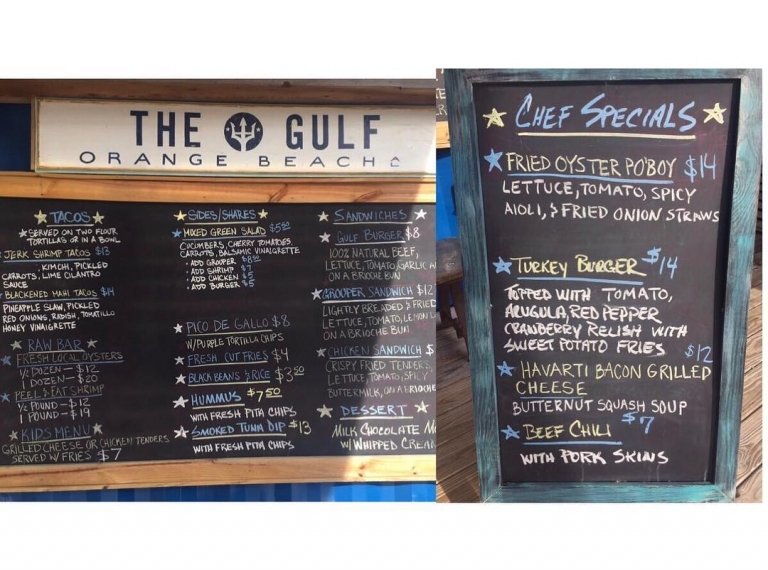 THE GULF
ORANGE BEACH
TACOS
SERVED ON TWO FLOUR
TORTILLAS OR IN A BOWL
JERK SHRIMP TACOS $13
KIMCHI, PICKLED
CARROTS, LIME CILANTRO
SAUCE
BLACKENED MAHI TACOS $14
PINEAPPLE SLAW, PICKLED
RED ONIONS, RADISH, TOMATILLO
HONEY VINAIGRETTE
RAW BAR
FRESH LOCAL OYSTERS
1/2 DOZEN - $12
1 DOZEN - $20
PEEL & EAT SHRIMP
1/2 POUND - $
1 POUND - $19
KIDS MENU
GRILLED CHEESE OR CHICKEN TENDERS
SERVED W/ FRIES $7
SIDES/SHARES
MIXED GREEN SALAD $5.50
CUCUMBERS, CHERRY TOMATOES,
CARROTS, BALSAMIC VINAIGRETTE
• ADD GROUPER
• ADD SHRIMP $7
• ADD CHICKEN $5
• ADD BURGER $5
PICO DE GALLO $8
W/ PURPLE TORTILLA CHIPS
FRESH CUT FRIES $4
BLACK BEANS & RICE $3.50
HUMMUS $7.50
WITH FRESH PITA CHIPS
SMOKED TUNA DIP $13
WITH FRESH PITA CHIPS
SANDWICHES
GULF BURGER $8
100% NATURAL BEEF,
LETTUCE, TOMATO, GARLIC A
ON A BRIOCHE BUN
GROUPER SANDWICH $12
LIGHTLY BREADED & FRIED
LETTUCE, TOMATO, LEMON
ON A BRIOCHE BUN
CHICKEN SANDWICH $
CRISPY FRIED TENDERS,
LETTUCE, TOMATO, SPICY
BUTTERMILK, ON A BRIOCHE
DESSERT
MILK CHOCOLATE MO
W/ WHIPPED CREAM
CHEF SPECIALS
FRIED OYSTER PO'BOY $14
LETTUCE, TOMATO, SPICY
AIOLI, & FRIED ONION STRAWS
TURKEY BURGER $14
TOPPED WITH TOMATO,
ARUGULA, RED PEPPER
CRANBERRY RELISH WITH
SWEET POTATO FRIES
$12
HAVARTI BACON GRILLED
CHEESE
BUTTERNUT SQUASH SOUP
BEEF CHILI $7
WITH PORK SKINS